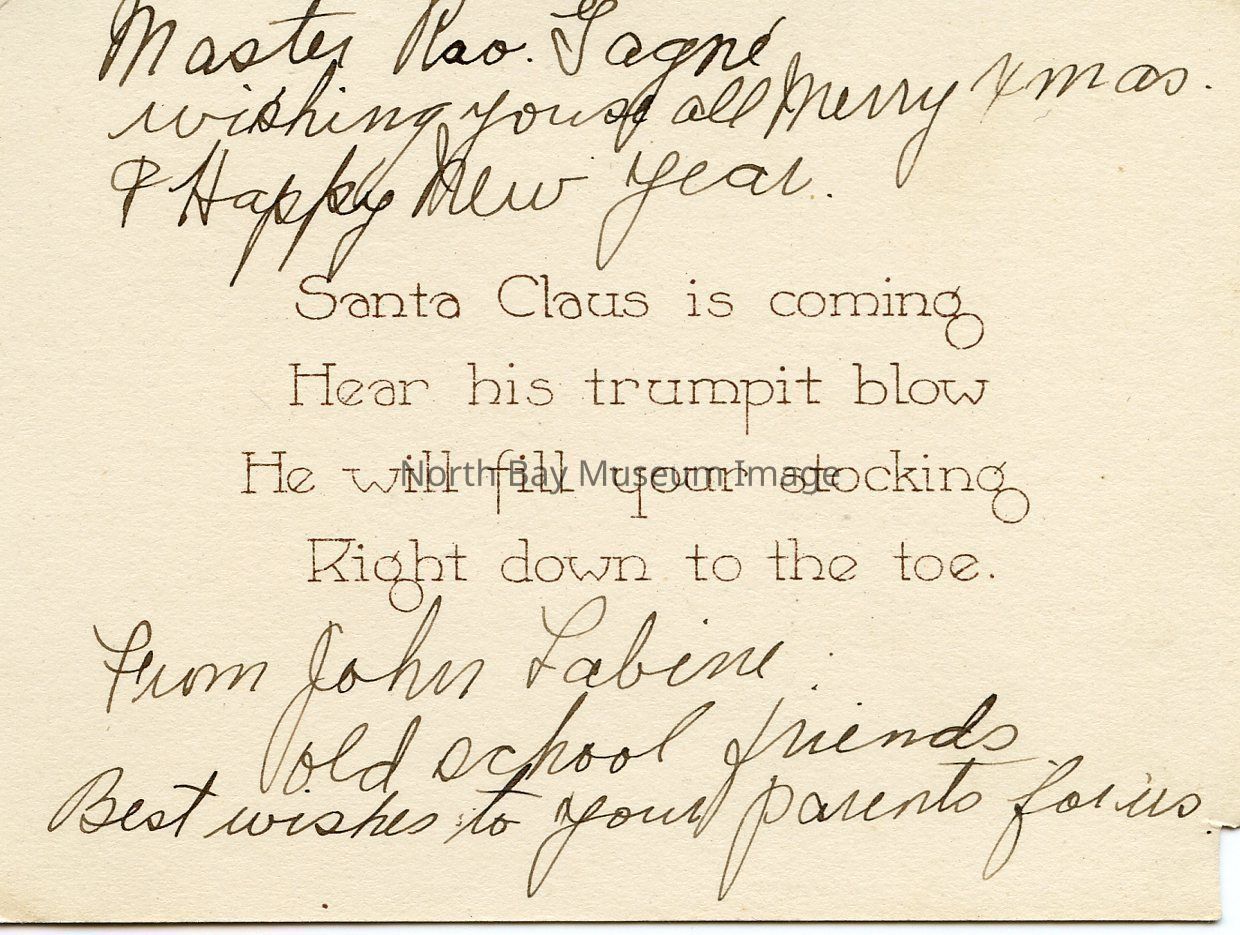 Master Rao. Gagné
wishing you all Merry Xmas.
& Happy New Year.
Santa Claus is coming
Hear his trumpit blow
He will fill your stocking
North Bay Museum Image
Right down to the toe.
From John Labine
old school friends
Best wishes to your parents for us.